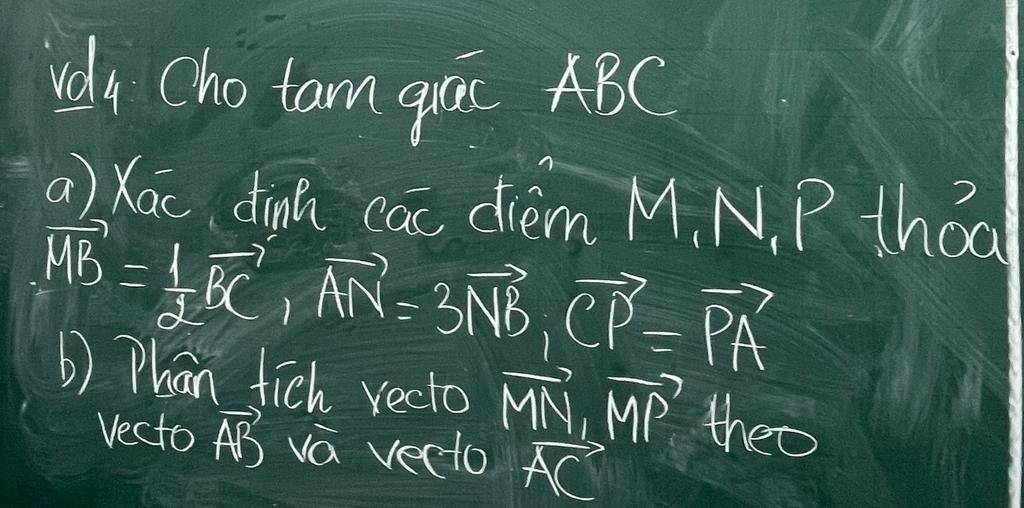 Vd4: Cho tam giác ABC
a) Xác định các điểm M, N, P thỏa
$\overrightarrow{MB} = \frac{1}{2}\overrightarrow{BC}$, $\overrightarrow{AN} = 3\overrightarrow{NB}$, $\overrightarrow{CP} = \overrightarrow{PA}$
b) Phân tích vecto $\overrightarrow{MN}$, $\overrightarrow{MP}$ theo
vecto $\overrightarrow{AB}$ và vecto $\overrightarrow{AC}$